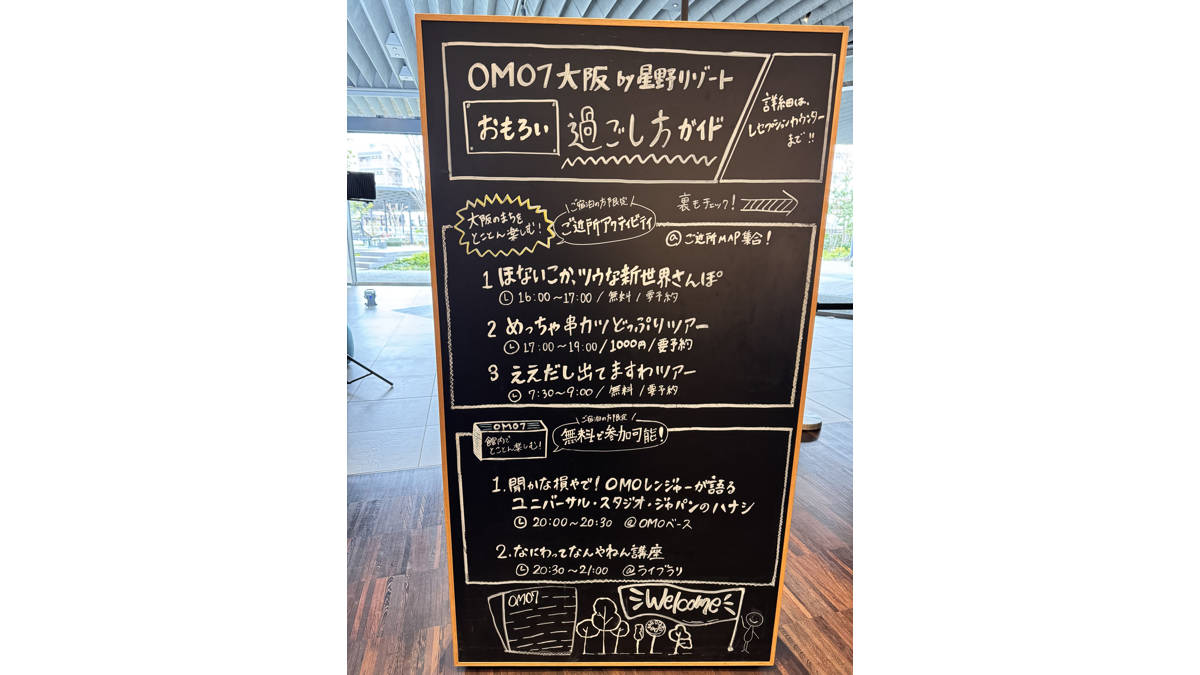 OMO7大阪 by 星野リゾート
おもろい 過ごし方ガイド
詳細は、
レセプションカウンター
まで!!
大阪のまちを
とことん楽しむ!
ご宿泊の方限定
ご近所アクティビティ
裏もチェック!
@ご近所MAP集合!
1 ほないこか、ツウな新世界さんぽ
16:00~17:00/無料/要予約
2 めっちゃ串カツどっぷりツアー
17:00~19:00/1000円/要予約
3 ええだし出てますわツアー
7:30~9:00/無料/要予約
OMO7
館内で
とことん楽しむ!
ご宿泊の方限定
無料で参加可能!
1. 聞かな損やで!OMOレンジャーが語る
ユニバーサル・スタジオ・ジャパンのハナシ
20:00~20:30 @OMOベース
2. なにわってなんやねん講座
20:30~21:00 @ライブラリ
OMO7
Welcome